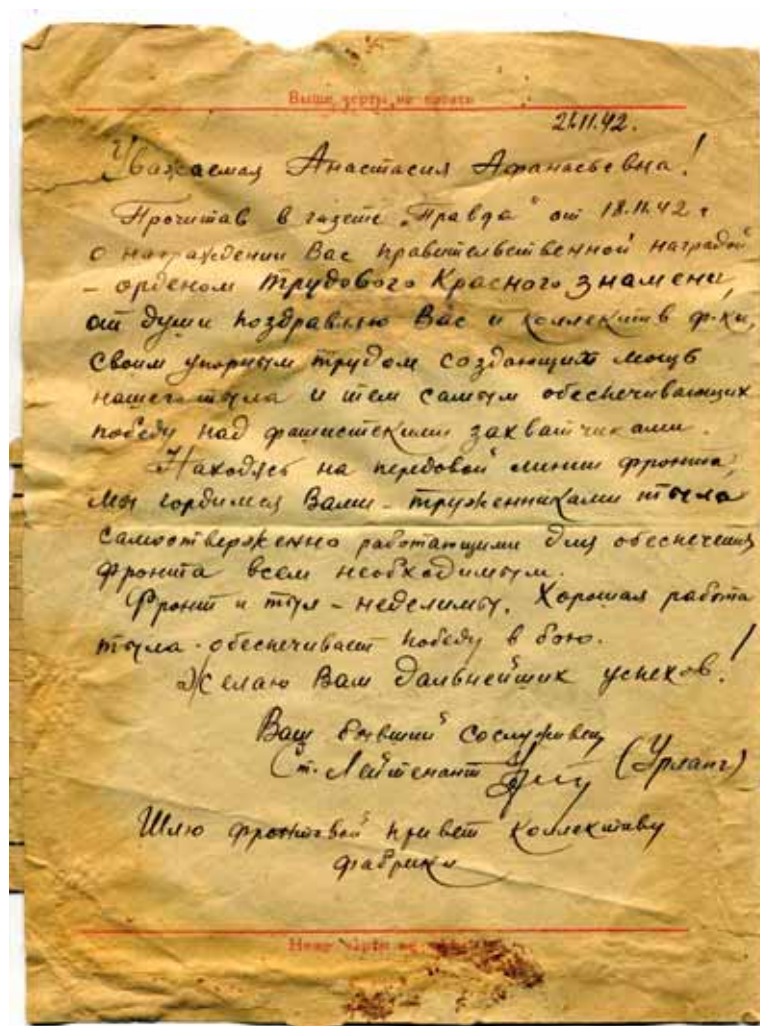 Выше черты не писать
21.11.42.
Уважаемая Анастасия Афанасьевна!
Прочитав в газете „Правда" от 18.11.42 г
о награждении Вас правительственной наградой
- орденом Трудового Красного знамени,
от души поздравляю Вас и коллектив ф-ки,
своим упорным трудом создающих мощь
нашего тыла и тем самым обеспечивающих
победу над фашистскими захватчиками.
Находясь на передовой линии фронта,
мы гордимся Вами - труженниками тыла
самоотверженно работающими для обеспечения
фронта всем необходимым.
Фронт и тыл - неделимы. Хорошая работа
тыла - обеспечивает победу в бою.
Желаю Вам дальнейших успехов!
Ваш бывший сослуживец
Ст. Лейтенант (Урланг)
Шлю фронтовой привет коллективу
фабрики
Ниже черты не